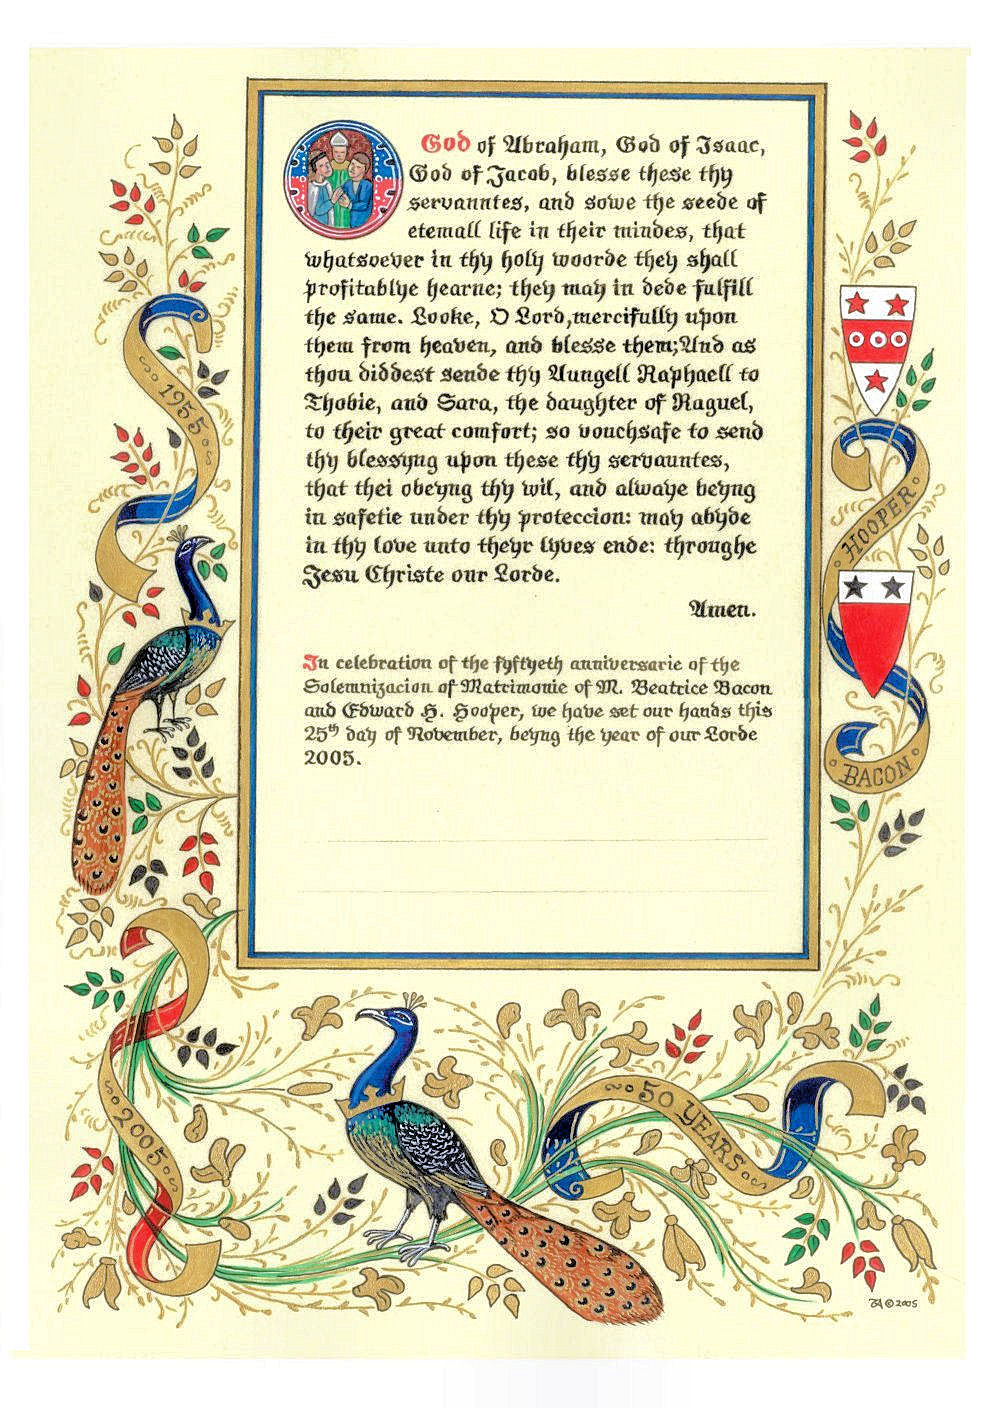 God of Abraham, God of Isaac,
God of Jacob, blesse these thy
servanntes, and sowe the seede of
eternall life in their mindes, that
whatsoever in thy holy woorde they shall
profitablye hearne; they may in dede fulfill
the same. Looke, O Lord,mercifully upon
them from heaven, and blesse them;And as
thou diddest sende thy Aungell Raphaell to
Thobie, and Sara, the daughter of Raguel,
to their great comfort; so vouchsafe to send
thy blessyng upon these thy servauntes,
that thei obeyng thy wil, and alwaye beyng
in safetie under thy proteccion: may abyde
in thy love unto theyr lyves ende: throughe
Jesu Christe our Lorde.
Amen.
In celebration of the fyftyeth anniversarie of the
Solemnizacion of Matrimonie of M. Beatrice Bacon
and Edward H. Hooper, we have set our hands this
25th day of November, beyng the year of our Lorde
2005.
1955
HOOPER
BACON
2005
50 YEARS
© 2005